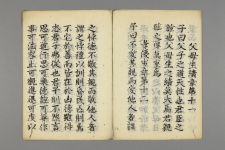 父母生績章第十一
子曰父子之道天性也君臣之
誼也父母生之績莫大焉君親
臨之厚莫重焉
孝優劣章第十二
子曰不愛其親而愛他人者謂
之悖德不敬其親而敬他人者
謂之悖禮以訓則昏民亡則焉
不宅於善而皆在於凶德雖得
志君子弗從也君子則不然言
思可道行思可樂德誼可尊作
事可法容止可觀進退可度以